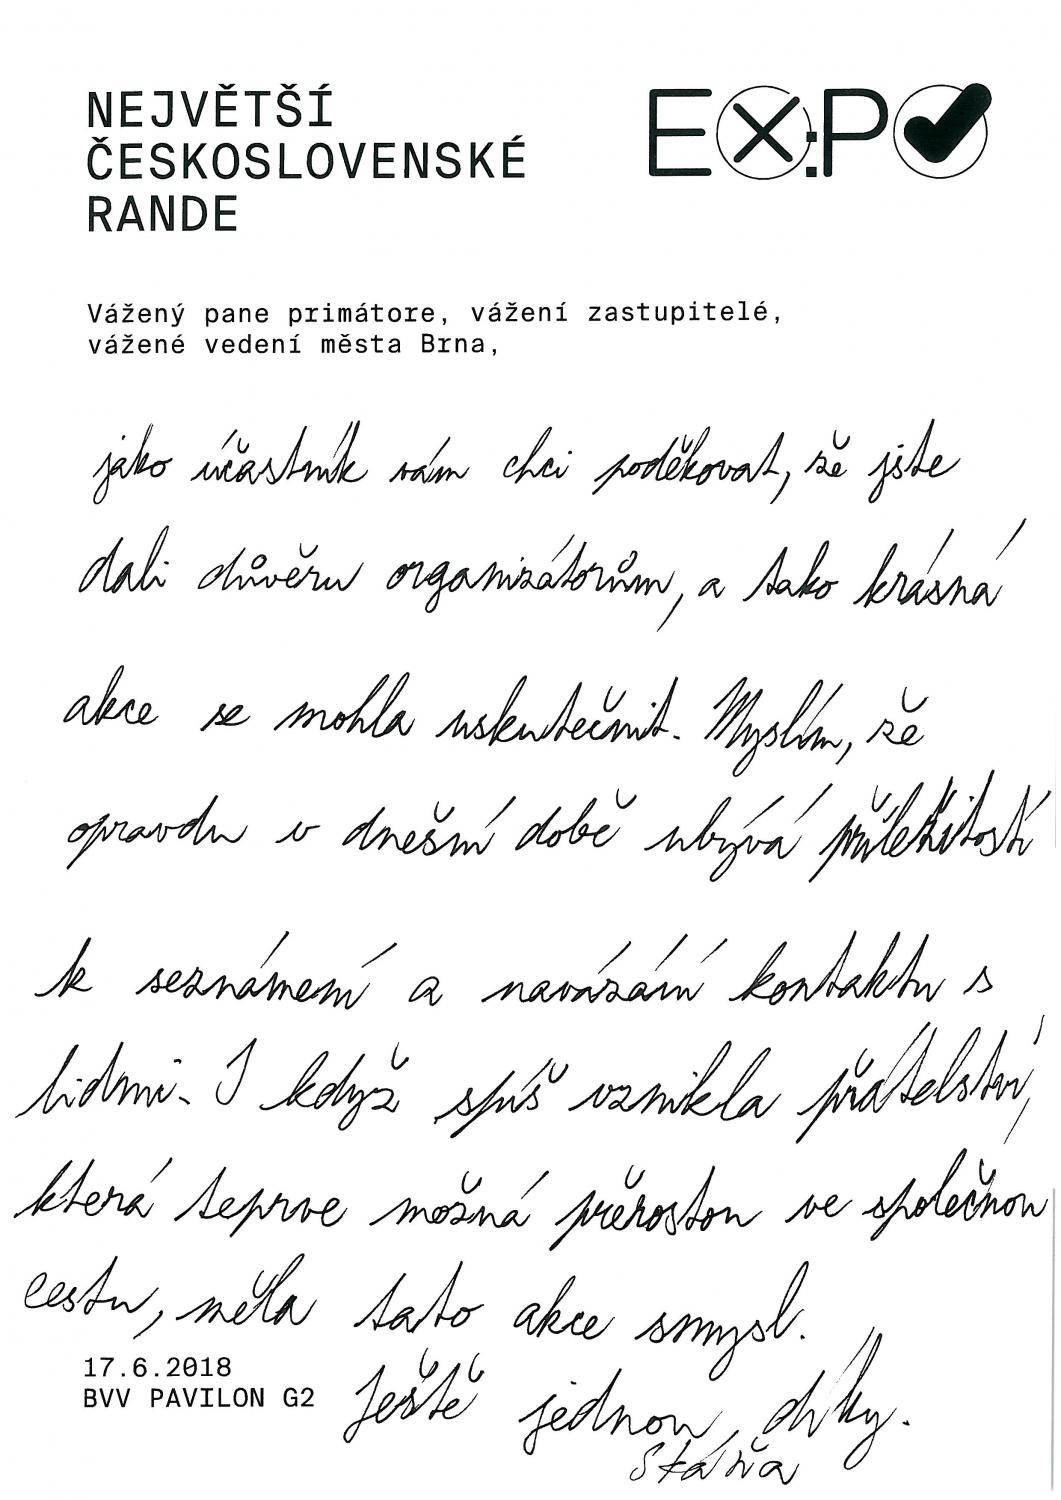 NEJVĚTŠÍ
ČESKOSLOVENSKÉ
RANDE
EX:PO
Vážený pane primátore, vážení zastupitelé,
vážené vedení města Brna,
jako účastník vám chci poděkovat, že jste
dali důvěru organizátorům, a tako krásná
akce se mohla uskutečnit. Myslím, že
opravdu v dnešní době ubývá příležitostí
k seznámení a navázání kontaktu s
lidmi. I když spíš vznikla přátelství,
která teprve možná přěrostou ve společnou
cestu, měla tato akce smysl.
17.6.2018
BVV PAVILON G2
Ještě jednou díky.